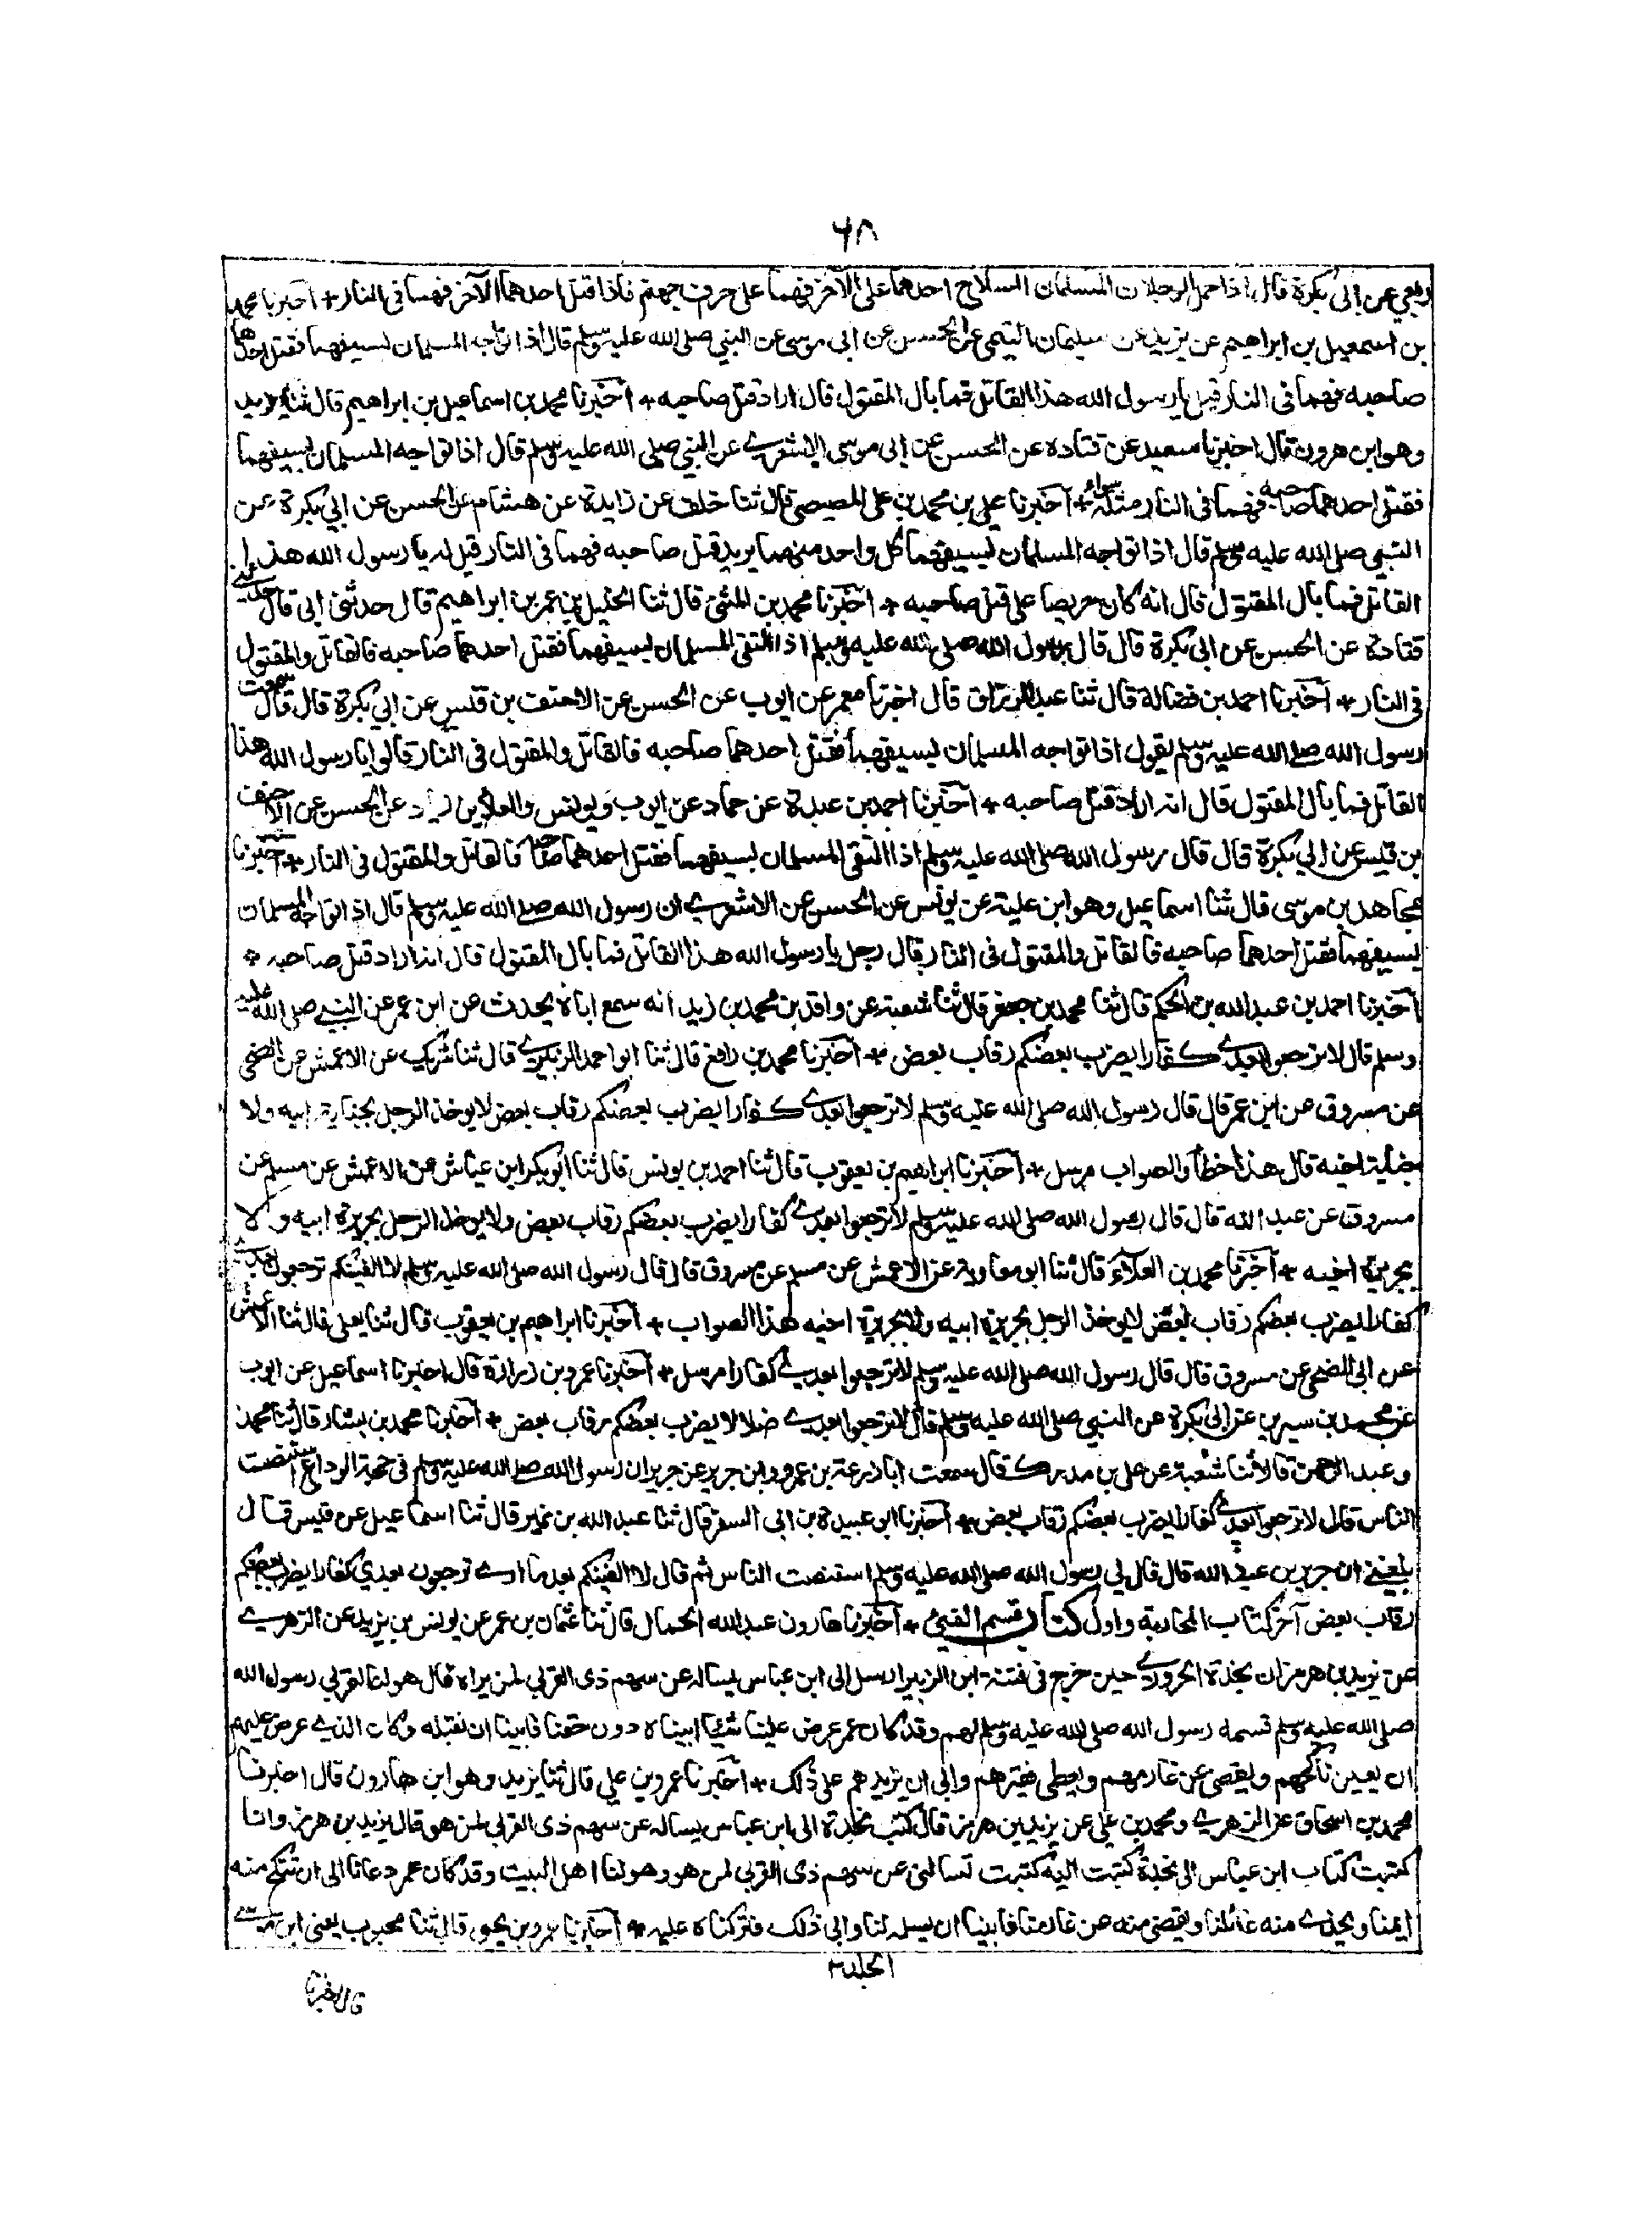 ٦٨
ربعي عن ابي بكرة قال اذا حمل الرجلان المسلمان السلاح احدهما على الآخر فهما على حرف جهنم فاذا قتل احدهما الآخر فهما في النار + اخبرنا محمد
بن اسمعيل بن ابراهيم عن يزيد عن سليمان التيمي عن الحسن عن ابي موسى عن النبي صلى الله عليه وسلم قال اذا تواجه المسلمان بسيفهما فقتل احدهما
صاحبه فهما في النار قيل يا رسول الله هذا القاتل فما بال المقتول قال اراد قتل صاحبه + اخبرنا محمد بن اسماعيل بن ابراهيم قال ثنا يزيد
وهو ابن هرون قال اخبرنا سعيد عن قتادة عن الحسن عن ابي موسى الاشعري عن النبي صلى الله عليه وسلم قال اذا تواجه المسلمان بسيفهما
فقتل احدهما صاحبه فهما في النار مثله سواء + اخبرنا علي بن محمد بن علي المصيصي قال ثنا خلف عن زايدة عن هشام عن الحسن عن ابي بكرة عن
النبي صلى الله عليه وسلم قال اذا تواجه المسلمان بسيفهما كل واحد منهما يريد قتل صاحبه فهما في النار قيل له يا رسول الله هذا
القاتل فما بال المقتول قال انه كان حريصا على قتل صاحبه + اخبرنا محمد بن المثنى قال ثنا الخليل بن عمر بن ابراهيم قال حدثني ابي قال حدثني
قتادة عن الحسن عن ابي بكرة قال قال رسول الله صلى الله عليه وسلم اذا التقى المسلمان بسيفهما فقتل احدهما صاحبه فالقاتل والمقتول
في النار + اخبرنا احمد بن فضالة قال ثنا عبد الرزاق قال اخبرنا معمر عن ايوب عن الحسن عن الاحنف بن قيس عن ابي بكرة قال قال سمعت
رسول الله صلى الله عليه وسلم يقول اذا تواجه المسلمان بسيفهما فقتل احدهما صاحبه فالقاتل والمقتول في النار قالوا يا رسول الله هذا
القاتل فما بال المقتول قال انه اراد قتل صاحبه + اخبرنا احمد بن عبدة عن حماد عن ايوب ويونس والعلا بن زياد عن الحسن عن الاحنف
بن قيس عن ابي بكرة قال قال رسول الله صلى الله عليه وسلم اذا التقى المسلمان بسيفهما فقتل احدهما صاحبه فالقاتل والمقتول في النار + اخبرنا
مجاهد بن موسى قال ثنا اسماعيل وهو ابن علية عن يونس عن الحسن عن الاشعري ان رسول الله صلى الله عليه وسلم قال اذا تواجه المسلمان
بسيفهما فقتل احدهما صاحبه فالقاتل والمقتول في النار قال رجل يا رسول الله هذا القاتل فما بال المقتول قال انه اراد قتل صاحبه +
اخبرنا احمد بن عبد الله بن الحكم قال ثنا محمد بن جعفر قال ثنا شعبة عن واقد بن محمد بن زيد انه سمع اباه يحدث عن ابن عمر عن النبي صلى الله عليه
وسلم قال لا ترجعوا بعدي كفارا يضرب بعضكم رقاب بعض + اخبرنا محمد بن رافع قال ثنا ابو احمد الزبيري قال ثنا شريك عن الاعمش عن الضحى
عن مسروق عن ابن عمر قال قال رسول الله صلى الله عليه وسلم لا ترجعوا بعدي كفارا يضرب بعضكم رقاب بعض لا يوخذ الرجل بجناية ابيه ولا
جناية اخيه قال هذا خطأ والصواب مرسل + اخبرنا ابراهيم بن يعقوب قال ثنا احمد بن يونس قال ثنا ابو بكر ابن عياش عن الاعمش عن مسلم عن
مسروق عن عبد الله قال قال رسول الله صلى الله عليه وسلم لا ترجعوا بعدي كفارا يضرب بعضكم رقاب بعض ولا يوخذ الرجل بجريرة ابيه ولا
بجريرة اخيه + اخبرنا محمد بن العلاء قال ثنا ابو معاوية عن الاعمش عن مسلم عن مسروق قال قال رسول الله صلى الله عليه وسلم لا الفينكم ترجعون بعدي
كفارا يضرب بعضكم رقاب بعض لا يوخذ الرجل بجريرة ابيه ولا بجريرة اخيه هذا الصواب + اخبرنا ابراهيم بن يعقوب قال ثنا يعلى قال ثنا الاعمش
عن ابي الضحى عن مسروق قال قال رسول الله صلى الله عليه وسلم لا ترجعوا بعدي كفارا مرسل + اخبرنا عمرو بن زرارة قال اخبرنا اسماعيل عن ايوب
عن محمد بن سيرين عن ابي بكرة عن النبي صلى الله عليه وسلم قال لا ترجعوا بعدي ضلالا يضرب بعضكم رقاب بعض + اخبرنا محمد بن بشار قال ثنا محمد
وعبد الرحمن قالا ثنا شعبة عن علي بن مدرك قال سمعت ابا زرعة بن عمرو بن جرير عن جرير ان رسول الله صلى الله عليه وسلم في حجة الوداع استنصت
الناس قال لا ترجعوا بعدي كفارا يضرب بعضكم رقاب بعض + اخبرنا ابو عبيدة بن ابي السفر قال ثنا عبد الله بن نمير قال ثنا اسماعيل عن قيس قال
بلغني ان جرير بن عبد الله قال قال لي رسول الله صلى الله عليه وسلم استنصت الناس ثم قال لا الفينكم بعد ما ارى ترجعون بعدي كفارا يضرب بعضكم
رقاب بعض آخر كتاب المحاربة واول كتاب قسم الفيئ + اخبرنا هارون عبد الله الحمال قال ثنا عثمان بن عمر عن يونس بن يزيد عن الزهري
عن يزيد بن هرمز ان نجدة الحروري حين خرج في فتنة ابن الزبير ارسل الى ابن عباس يساله عن سهم ذي القربى لمن يراه قال هو لنا لقربى رسول الله
صلى الله عليه وسلم قسمه رسول الله صلى الله عليه وسلم لهم وقد كان عمر عرض علينا شيئا ابيناه دون حقنا فابينا ان نقبله وكان الذي عرض عليهم
ان يعين ناكحهم ويقضى عن غارمهم ويعطي فقيرهم وابى ان يزيدهم على ذلك + اخبرنا عمرو بن علي قال ثنا يزيد وهو ابن هارون قال اخبرنا
محمد بن اسحاق عن الزهري ومحمد بن علي عن يزيد بن هرمز قال كتب نجدة الى ابن عباس يساله عن سهم ذي القربى لمن هو قال يزيد بن هرمز وانا
كتبت كتاب ابن عباس الى نجدة كتبت اليه كتبت تسالني عن سهم ذي القربى لمن هو وهو لنا اهل البيت وقد كان عمر دعانا الى ان ننكح منه
ايمنا ويحذي منه عائلنا ويقضي منه عن غارمنا فابينا ان يسلمه لنا وابى ذلك فتركناه عليه + اخبرنا عمرو بن يحيى قال ثنا محبوب يعني ابن موسى
الجلد٣
قال اخبرنا